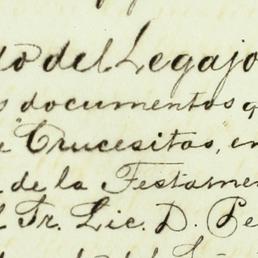 do del Legajo
s documentos q
Crucesitas, en
de la Testamen
l Sr. Lic. D. Pe